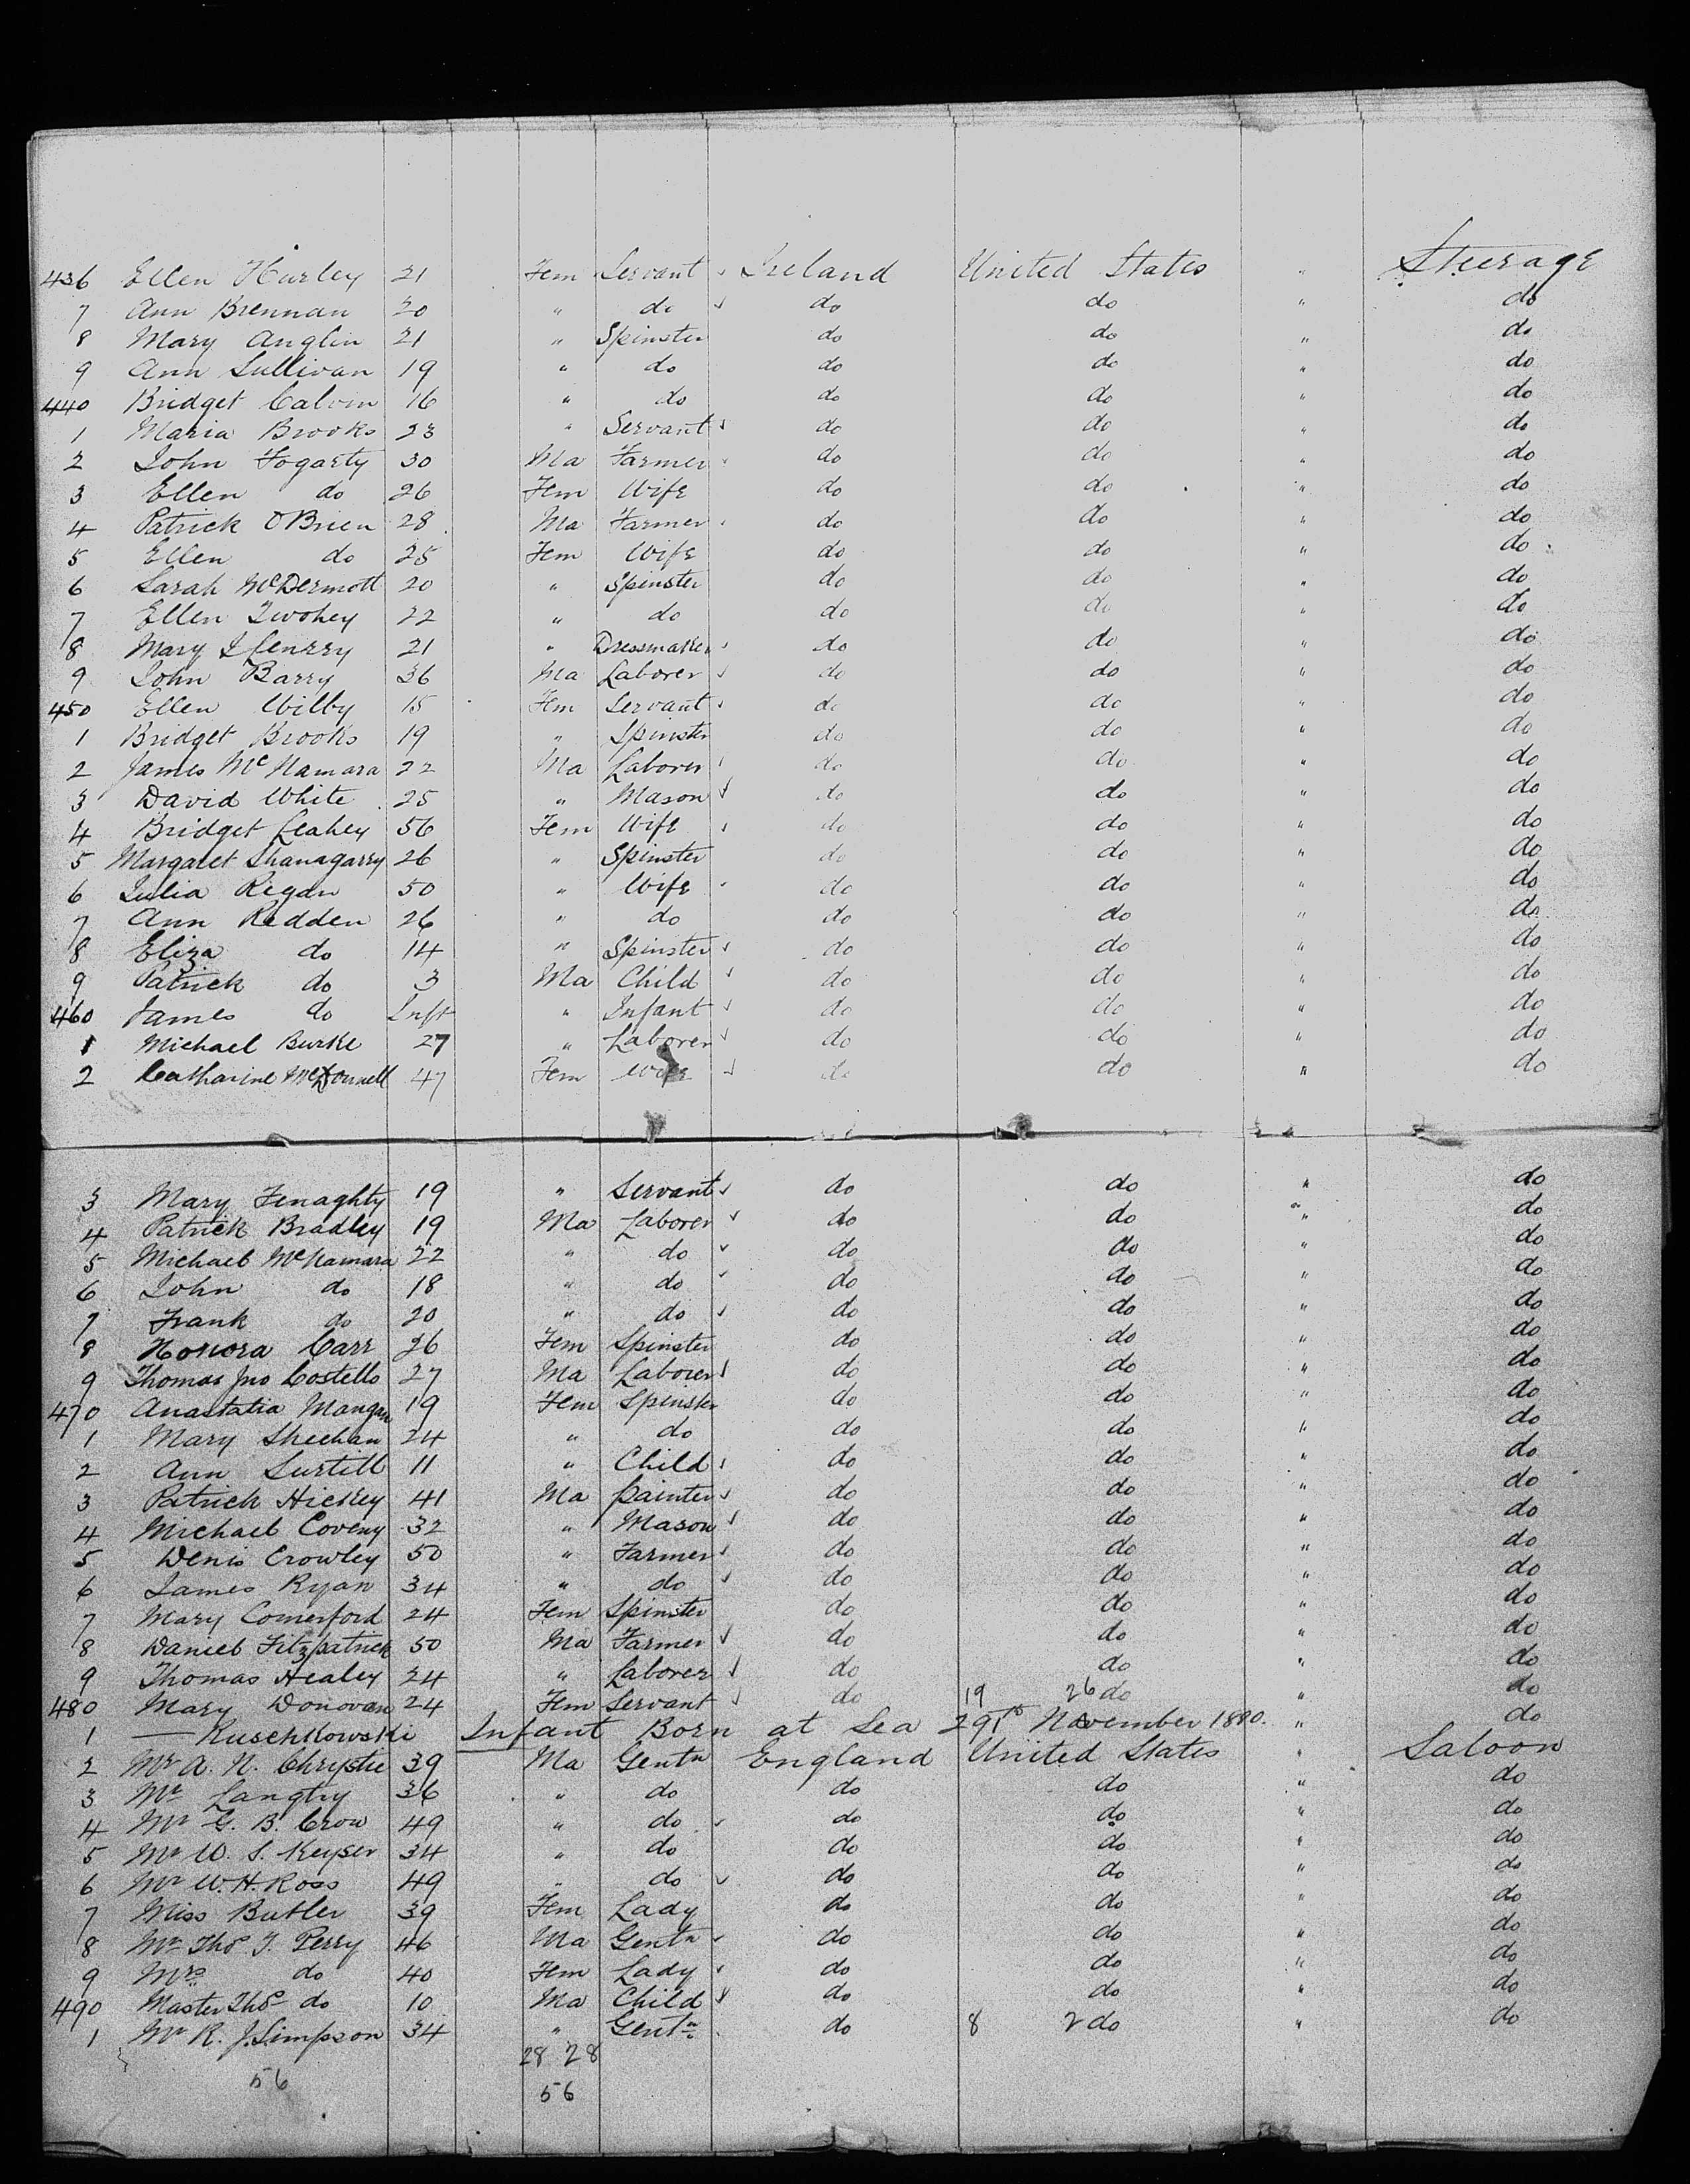 436 Ellen Hurley 21 Fem Servant Ireland United States " Steerage
7 Ann Brennan 20 " do do do " do
8 Mary Anglin 21 " Spinster do do " do
9 Ann Sullivan 19 " do do do " do
440 Bridget Galvin 16 " do do do " do
1 Maria Brooks 23 " Servant do do " do
2 John Fogarty 30 Ma Farmer do do " do
3 Ellen do 26 Fem Wife do do " do
4 Patrick OBrien 28 Ma Farmer do do " do
5 Ellen do 25 Fem Wife do do " do
6 Sarah McDermott 20 " Spinster do do " do
7 Ellen Twohey 22 " do do do " do
8 Mary 21 " Dressmaker do do " do
9 John Barry 36 Ma Laborer do do " do
450 Ellen Wilby 15 Fem Servant do do " do
1 Bridget Brooks 19 " Spinster do do " do
2 James McNamara 22 Ma Laborer do do " do
3 David White 25 " Mason do do " do
4 Bridget Leahey 56 Fem Wife do do " do
5 Margaret Shanagarry 26 " Spinster do do " do
6 Julia Regan 50 " Wife do do " do
7 Ann Redden 26 " do do do " do
8 Eliza do 14 " Spinster do do " do
9 Patrick do 3 Ma Child do do " do
460 James do Inft " Infant do do " do
1 Michael Burke 27 " Laborer do do " do
2 Catharine McDonnell 47 Fem Wife do do " do
3 Mary Fenaghty 19 " Servant do do " do
4 Patrick Bradley 19 Ma Laborer do do " do
5 Michael McNamara 22 " do do do " do
6 John do 18 " do do do " do
7 Frank do 20 " do do do " do
8 Honora Carr 26 Fem Spinster do do " do
9 Thomas Jno Costello 27 Ma Laborer do do " do
470 Anastatia Mangan 19 Fem Spinster do do " do
1 Mary Sheehan 24 " do do do " do
2 Ann Surtill 11 " Child do do " do
3 Patrick Hickey 41 Ma Painter do do " do
4 Michael Coveny 32 " Mason do do " do
5 Denis Crowley 50 " Farmer do do " do
6 James Ryan 34 " do do do " do
7 Mary Comerford 24 Fem Spinster do do " do
8 Daniel Fitzpatrick 50 Ma Farmer do do " do
9 Thomas Healey 24 " Laborer do do " do
480 Mary Donovan 24 Fem Servant do 19 26 do " do
1 — Kuschkowski Infant Born at Sea 29th November 1880. " do
2 Mr A. N. Chrystie 39 Ma Gentn England United States " Saloon
3 Mr Langtry 36 " do do do " do
4 Mr G. B. Crow 49 " do do do " do
5 Mr W. S. Keyser 34 " do do do " do
6 Mr W. H. Ross 49 " do do do " do
7 Miss Butler 39 Fem Lady do do " do
8 Mr Thos T. Perry 46 Ma Gentn do do " do
9 Mrs do 40 Fem Lady do do " do
490 Master Thos do 10 Ma Child do do " do
1 Mr R. J. Simpson 34 " Gentn do 8 2 do " do
28 28
56 56